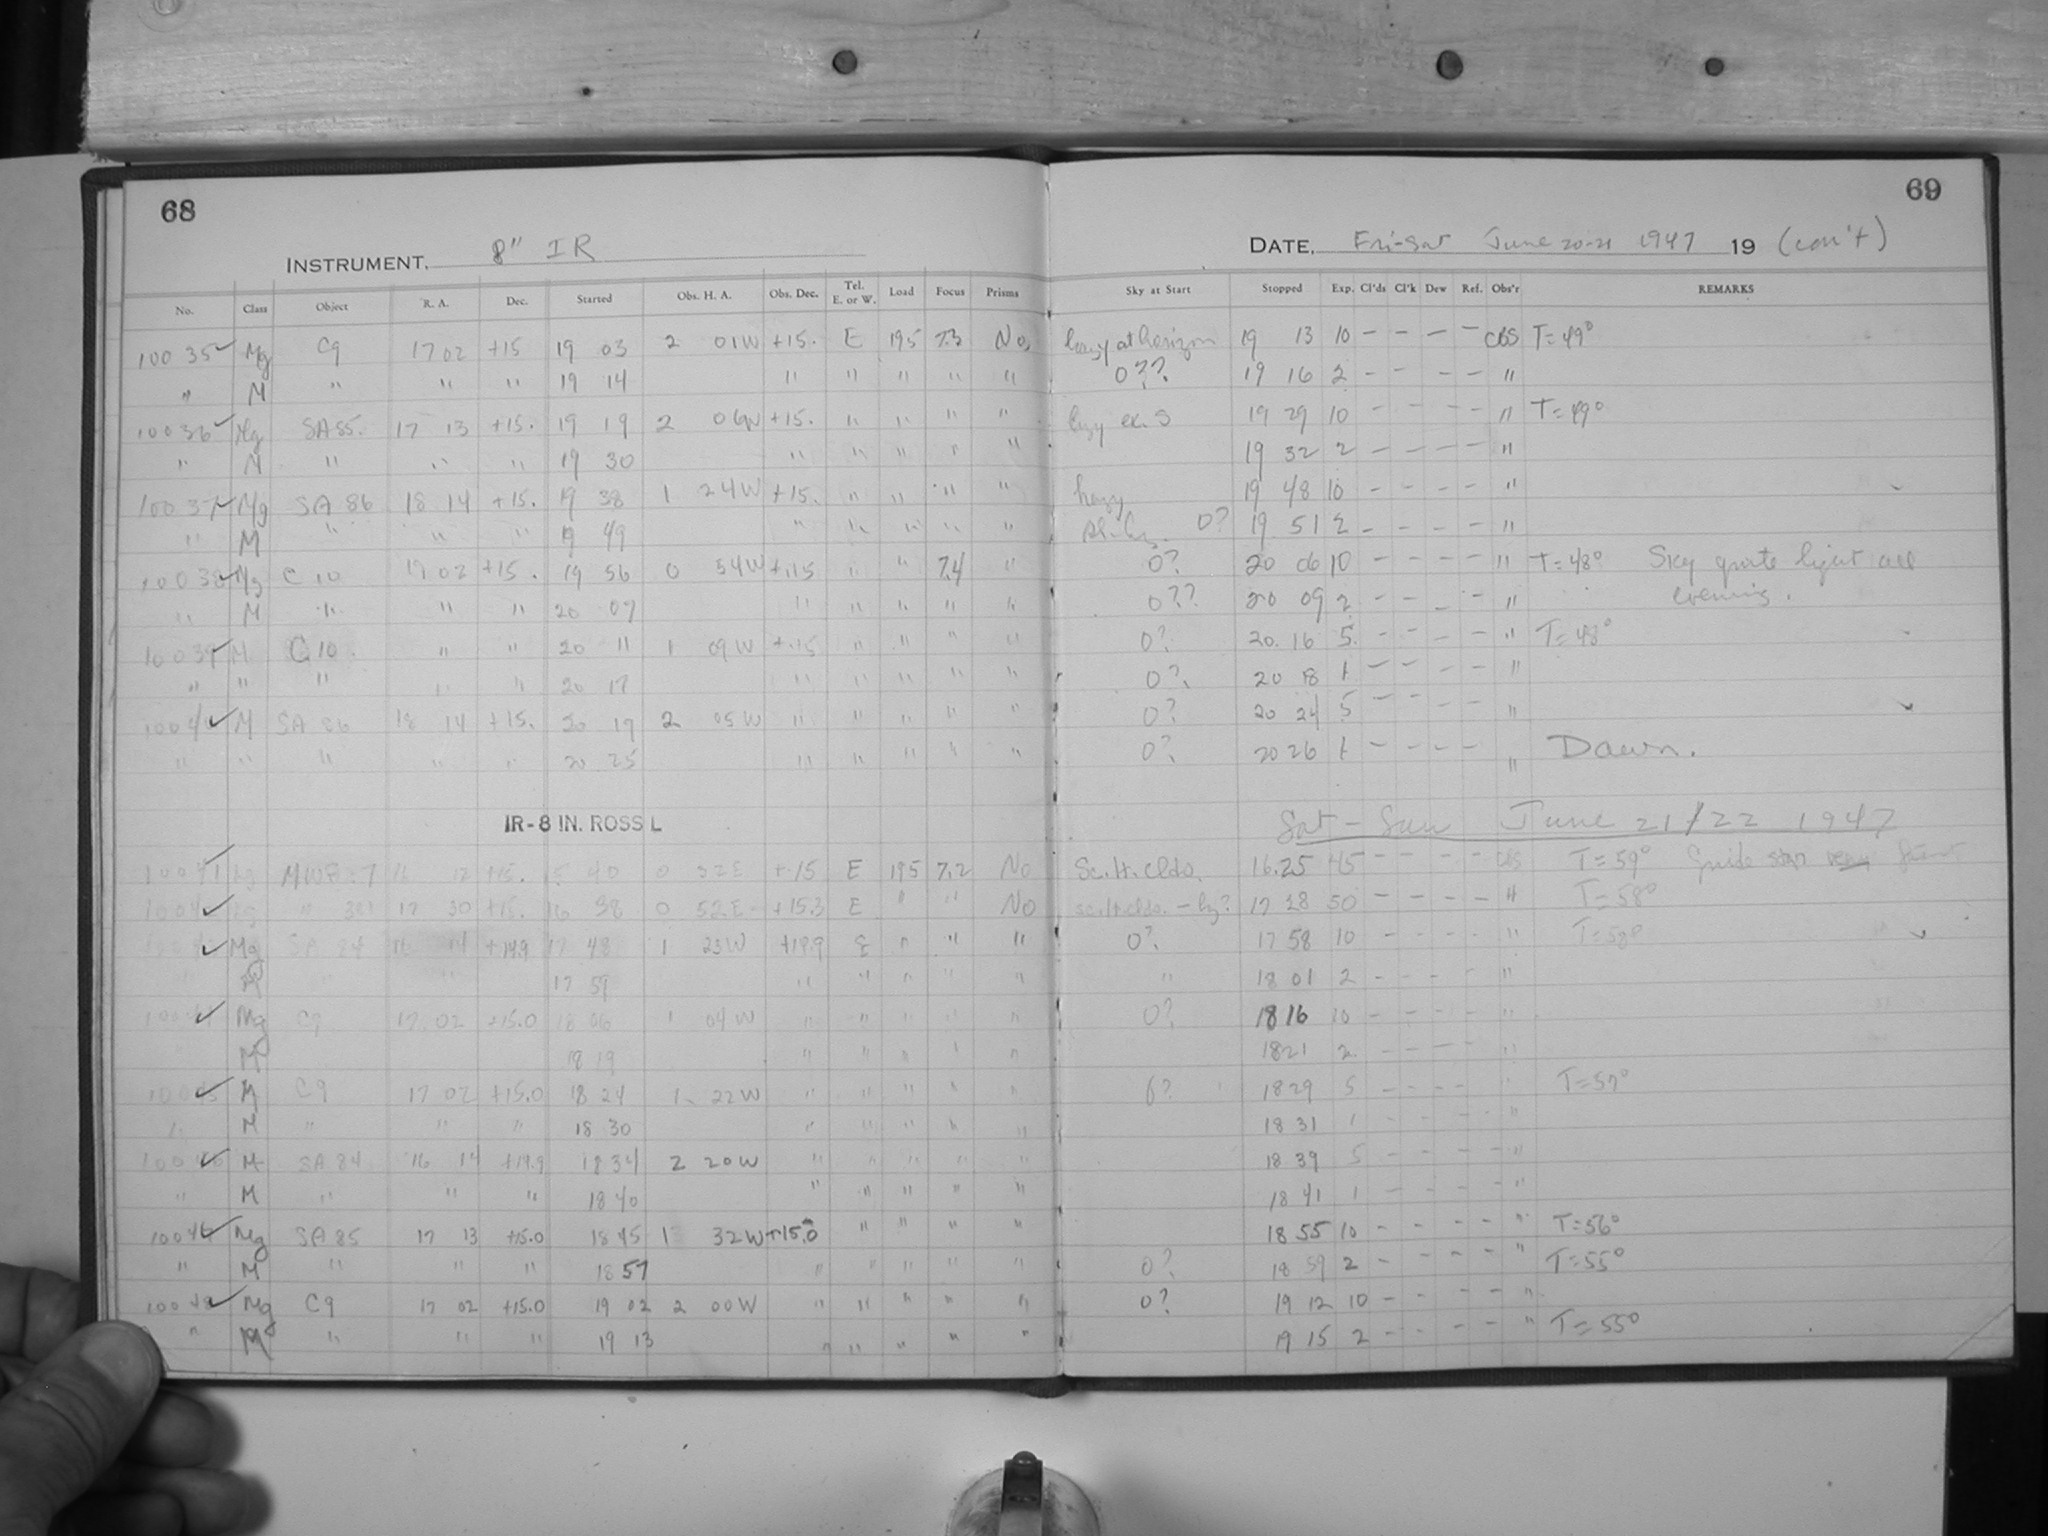 68
69
INSTRUMENT. 8" IR
DATE, Fri-Sat June 20-21 1947 19 (con't)
No. Class Object R. A. Dec. Started Obs. H. A. Obs. Dec. Tel. E. or W. Load Focus Prisms Sky at Start Stopped Exp. Cl'ds Cl'k Dew Ref. Obs'r REMARKS
10035 Mg C9 17 02 +15 19 03 2 01W +15. E 195 7.3 No hazy at horizon 19 13 10 - - - - CBS T=49°
" M " " " 19 14 " " " " " 0?? 19 16 2 - - - - "
10036 Mg 17 13 +15. 19 19 2 06W +15. " " " " 19 29 10 - - - - " T=49°
" M " " " 19 30 " " " " " 19 32 2 - - - - "
10037 Mg SA 86 18 14 +15. 19 38 1 24W +15. " " " " hazy 19 48 10 - - - - "
" M " " " 19 49 " " " " " 0? 19 51 2 - - - - "
10038 Mg C 10 +15. 19 56 0 54W +15 " " 7.4 " 0? 20 06 10 - - - - " T=48° Sky quite light all
" M " " " 20 07 " " " " " 0?? 20 09 2 - - - - " evening.
10039 M C 10 " " 20 11 1 09W +15 " " " " 0? 20 16 5 - - - - " T=48°
" " " " " 20 17 " " " " " 0? 20 18 1 - - - - "
10040 M SA 86 18 14 +15. 20 19 2 05W " " " " " 0? 20 24 5 - - - - "
" " " " " 20 25 " " " " " 0? 20 26 1 - - - - " Dawn.
IR-8 IN. ROSS L
Sat - Sun June 21/22 1947
10041 +15. 0 32E +15 E 195 7.2 No Sc. lt. clds. 16 25 45 - - - - CBS T=59° Guide star
17 30 +15. 16 38 0 52E +15.3 E " " No sc. lt. clds. - hz? 17 28 50 - - - - " T=58°
Mg SA 84 16 14 +14.9 17 48 1 23W E " " " 0? 17 58 10 - - - - " T=58°
" " " 17 59 " " " " " " 18 01 2 - - - - "
Mg C9 17 02 +15.0 18 06 1 04W " " " " " 0? 18 16 10 - - - - "
M 18 19 " " " " " 18 21 2 - - - - "
10045 M C9 17 02 +15.0 18 24 1 22W " " " " " 18 29 5 - - - - " T=57°
" M " " " 18 30 " " " " " 18 31 1 - - - - "
10046 M SA 84 16 14 18 34 2 20W " " " " " 18 39 5 - - - - "
" M " " " 18 40 " " " " " 18 41 1 - - - - "
Mg SA 85 17 13 +15.0 18 45 1 32W +15.0 " " " " 18 55 10 - - - - " T=56°
" M " " " 18 57 " " " " " 0? 18 59 2 - - - - " T=55°
10048 Mg C9 17 02 +15.0 19 02 2 00W " " " " " 0? 19 12 10 - - - - "
" M " " " 19 13 " " " " " 19 15 2 - - - - " T=55°